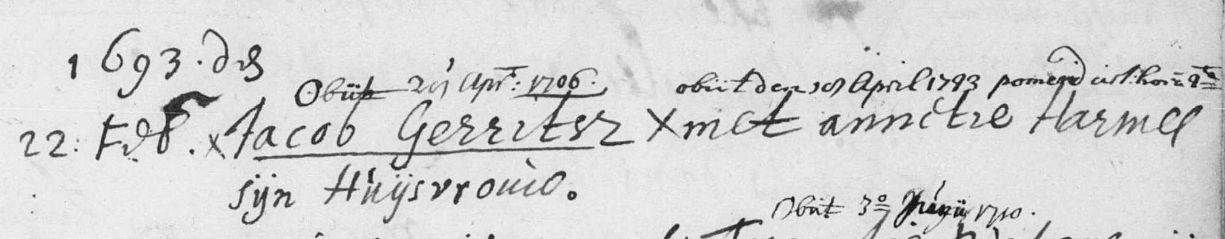 1693. d
Obiit 20 Apr: 1706. obiit den 18 April 1793 pomerid
22. feb. x Jacob Gerritsz X met annitie Harmes
sijn Huijsvrouw.
Obiit 30 1710.